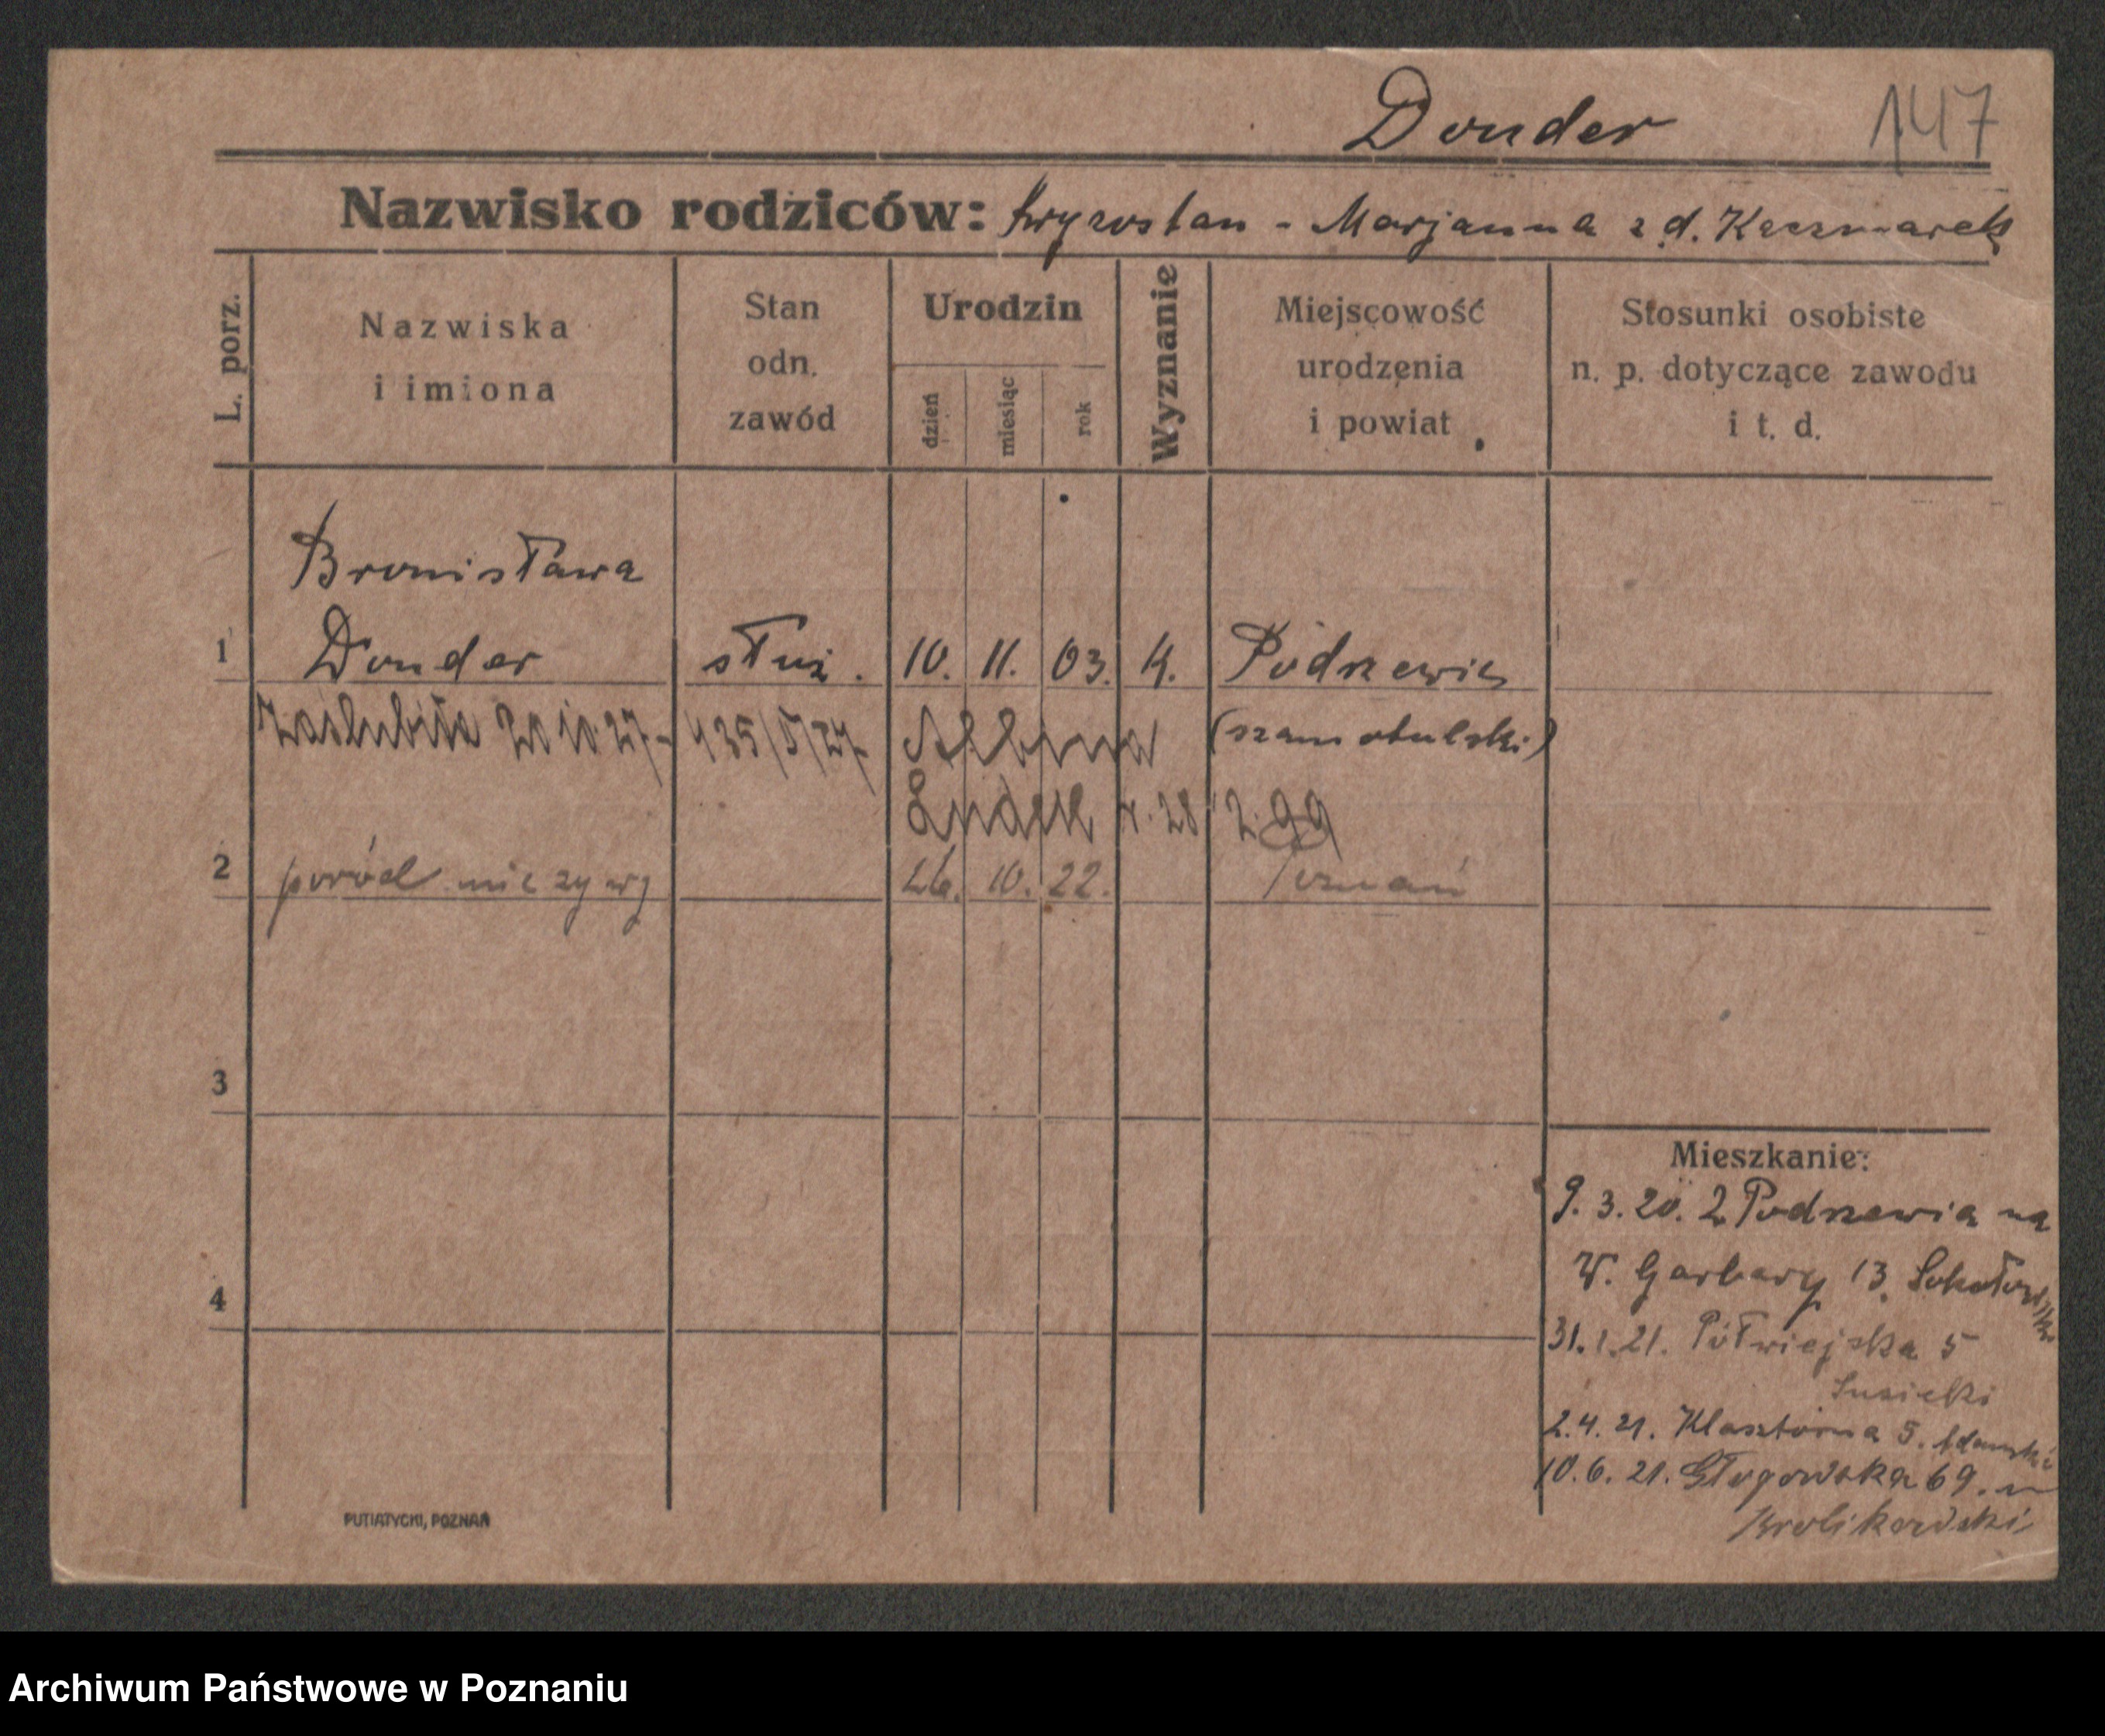 Donder 147
Nazwisko rodziców: Kryzostan - Marjanna z d. Kaczmarek
L. porz.
Nazwiska
i imiona
Stan
odn.
zawód
Urodzin
dzień
miesiąc
rok
Wyznanie
Miejscowość
urodzenia
i powiat
Stosunki osobiste
n. p. dotyczące zawodu
i t. d.
Bronisława
1 Donder służ. 10. 11. 03. K. Podrzewie
zaślubiła 20 10. 27 - 435/5/27 Albina (szamotulski)
28 2. 99
2 poród nieżywy 26. 10. 22. Poznań
3
4
Mieszkanie:
9. 3. 20. z Podrzewia na
W. Garbary 13.
31. 1. 21. Półwiejska 5
2. 4. 21. Klasztorna 5. Adamski
10. 6. 21. Głogowska 69.
Krolikowski
PUTIATYCKI, POZNAŃ
Archiwum Państwowe w Poznaniu